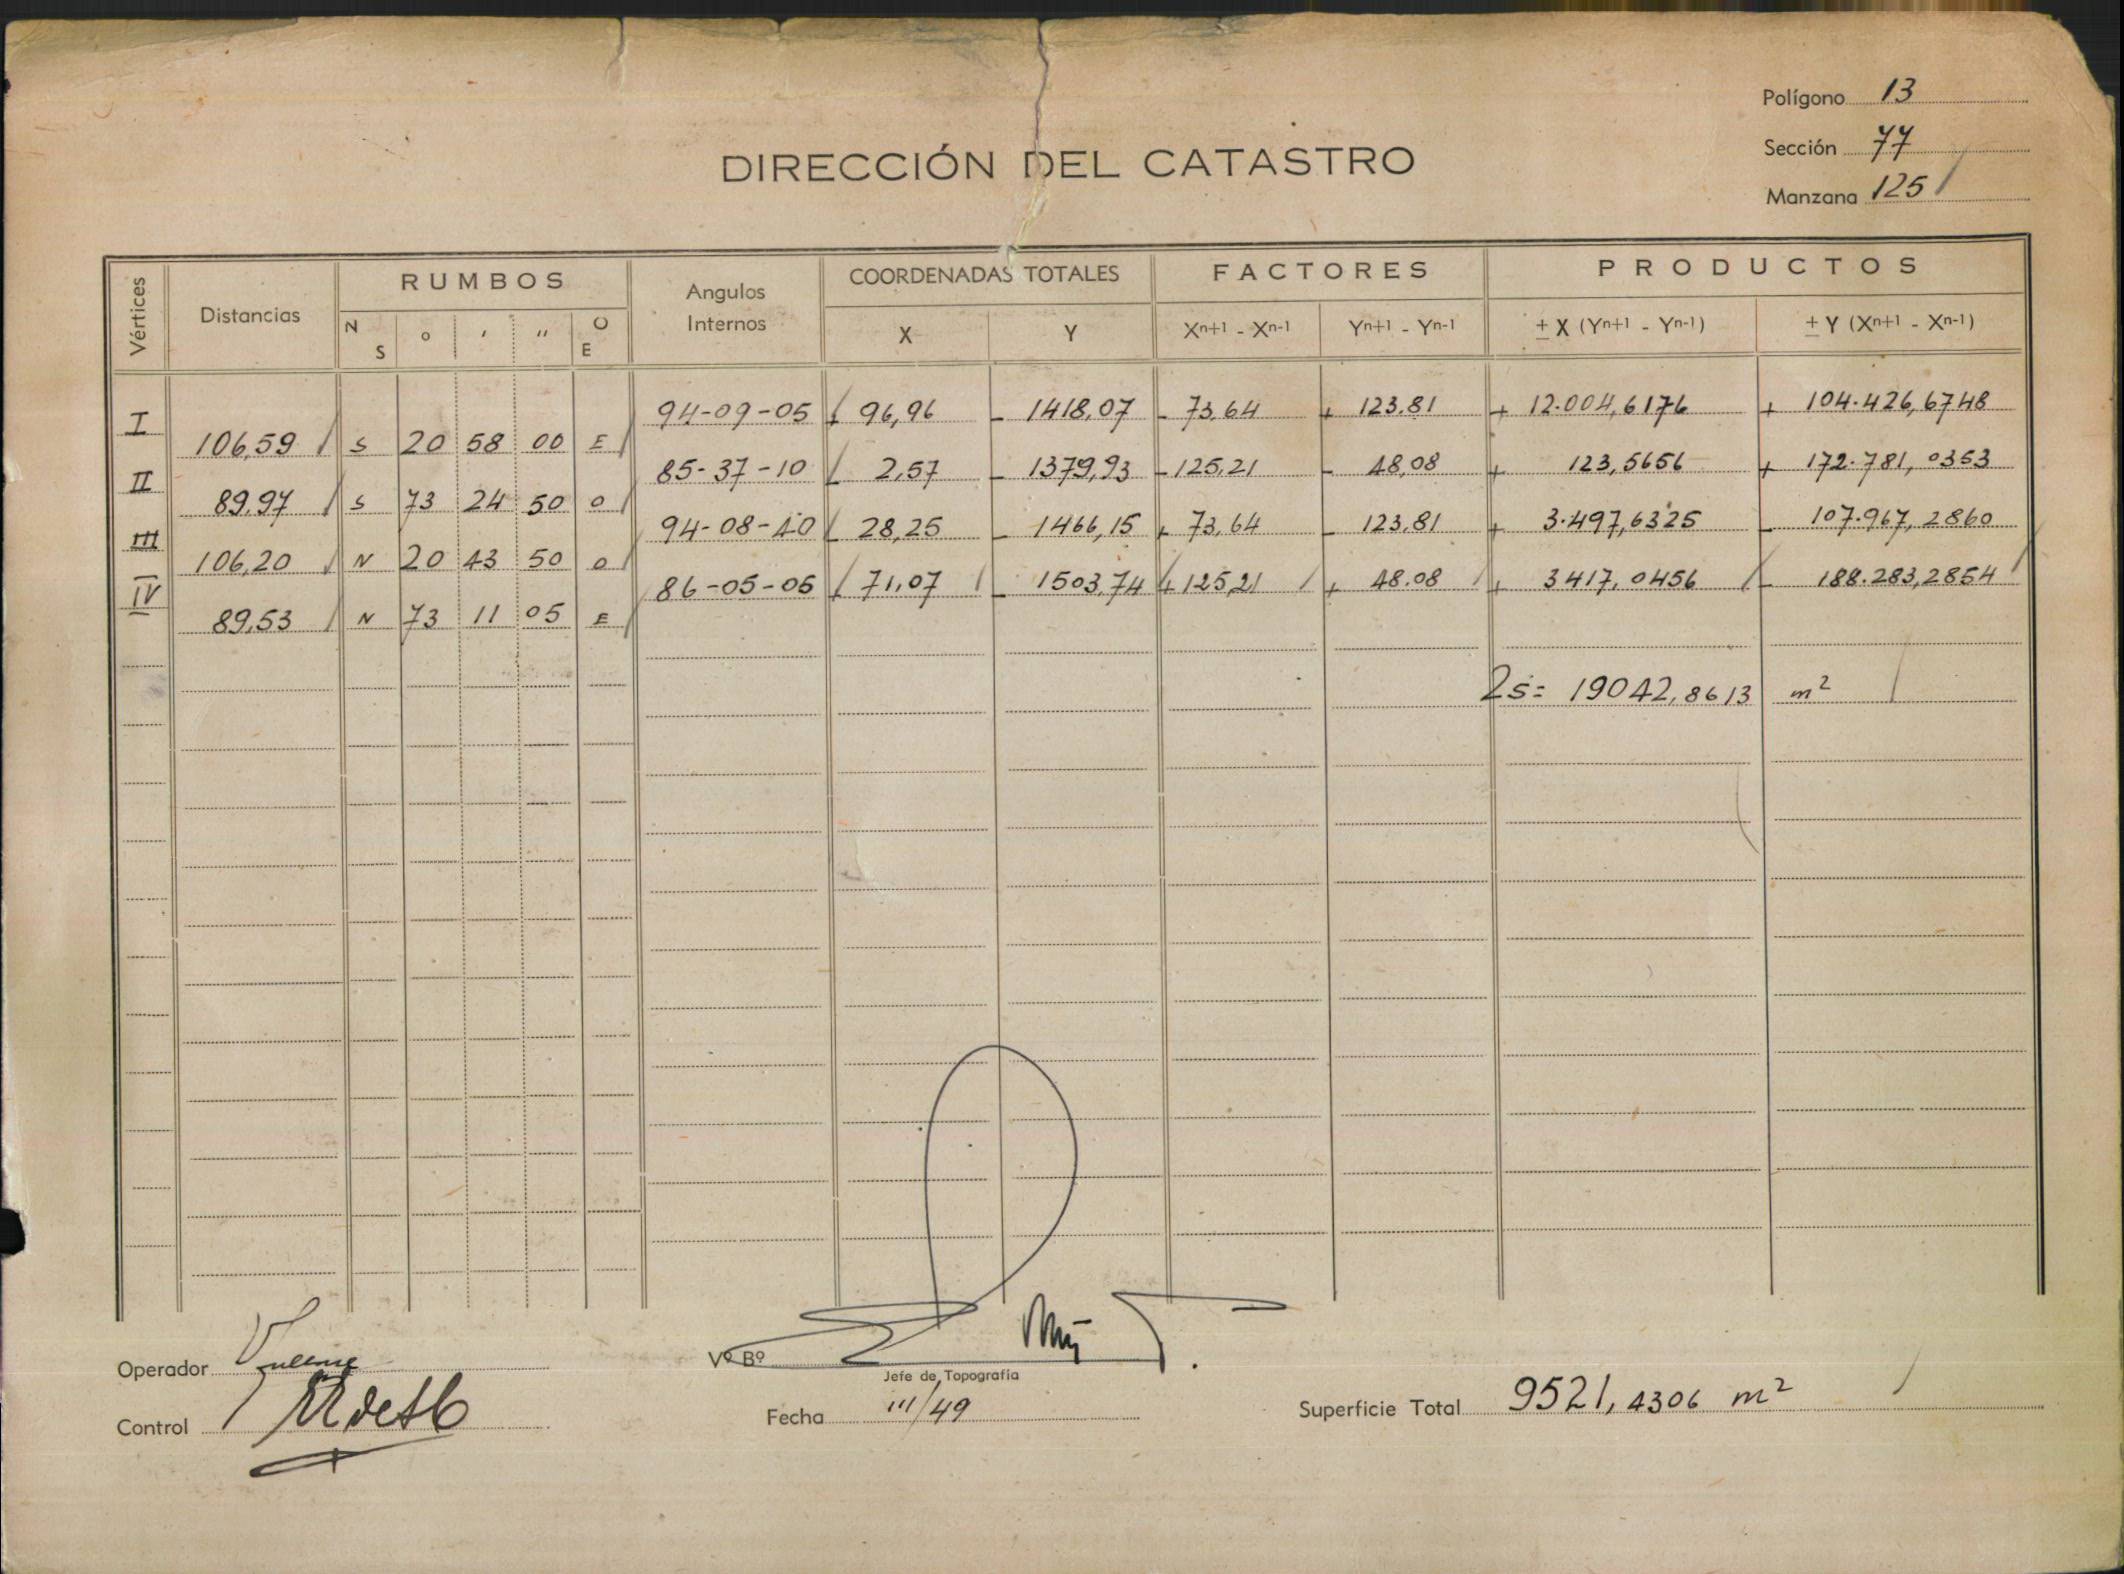 Polígono 13
DIRECCIÓN DEL CATASTRO
Sección 77
Manzana 125
Vértices Distancias RUMBOS Angulos Internos COORDENADAS TOTALES FACTORES PRODUCTOS
N S ° ' " O E X Y Xn+1 - Xn-1 Yn+1 - Yn-1 ± X (Yn+1 - Yn-1) ± Y (Xn+1 - Xn-1)
I 94-09-05 + 96,96 - 1418,07 - 73,64 + 123,81 + 12.004,6176 + 104.426,6748
106,59 S 20 58 00 E
II 85-37-10 - 2,57 - 1379,93 - 125,21 - 48,08 + 123,5656 + 172.781,0353
89,97 S 73 24 50 O
III 94-08-40 - 28,25 - 1466,15 + 73,64 - 123,81 + 3.497,6325 - 107.967,2860
106,20 N 20 43 50 O
IV 86-05-05 + 71,07 - 1503,74 + 125,21 + 48.08 + 3417,0456 - 188.283,2854
89,53 N 73 11 05 E
2S= 19042,8613 m²
Operador
Vº Bº
Jefe de Topografía
Control
Fecha III/49
Superficie Total 9521,4306 m²